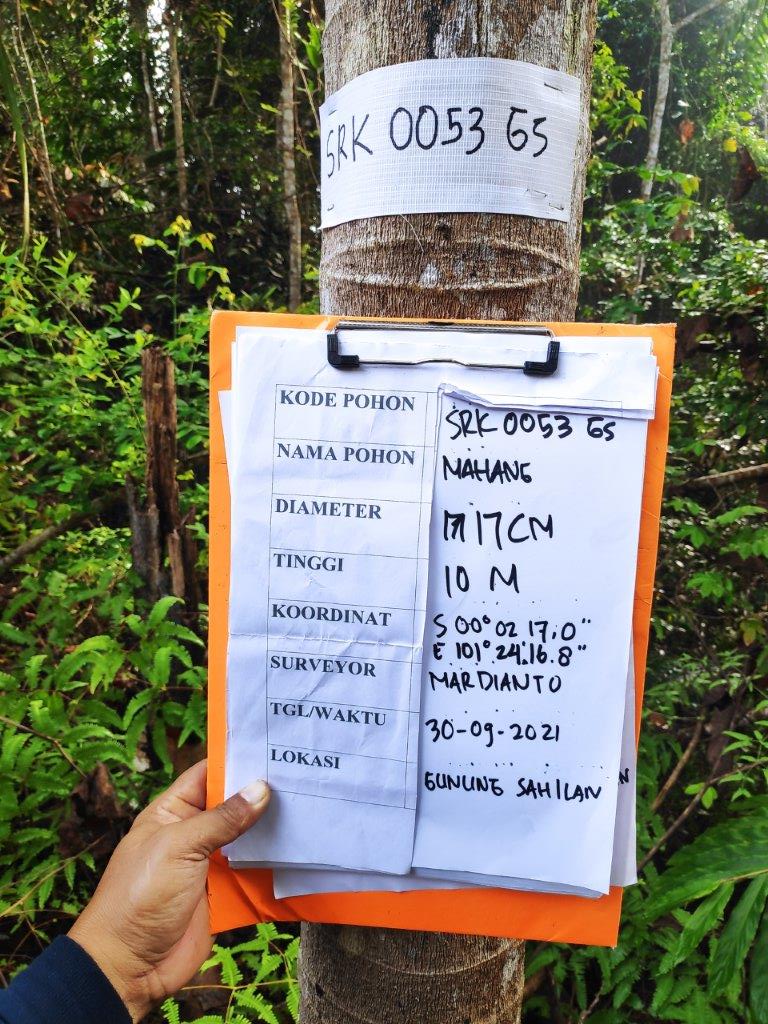 SRK 0053 GS
KODE POHON SRK 0053 GS
NAMA POHON MAHANG
DIAMETER 17 CM
TINGGI 10 M
KOORDINAT S 00° 02 17.0"
E 101° 24.16.8"
SURVEYOR MARDIANTO
TGL/WAKTU 30-09-2021
LOKASI GUNUNG SAHILAN